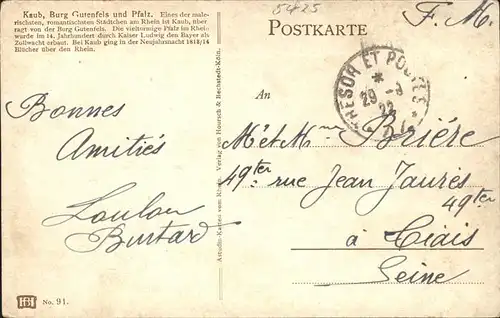 Kaub, Burg Gutenfels und Pfalz. Eines der male-
rischsten, romantischsten Städtchen am Rhein ist Kaub, über-
ragt von der Burg Gutenfels. Die vieltürmige Pfalz im Rhein
wurde im 14. Jahrhundert durch Kaiser Ludwig den Bayer als
Zollwacht erbaut. Bei Kaub ging in der Neujahrsnacht 1813/14
Blücher über den Rhein.
Bonnes
Amitiés
Loulou
Burtard
No. 91.
Astudin-Karten vom Rhein. Verlag von Hoursch & Bechstedt-Köln.
5425
F. M.
POSTKARTE
TRESOR ET POSTES
29 - 8
22
An
M et Mme Brière
49ter rue Jean Jaurès
49ter
à Thiais
Seine